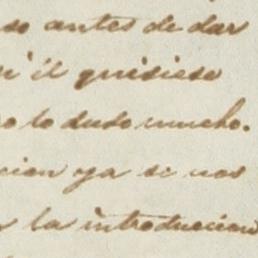 so antes de dar
si él quisiese
o lo dudo mucho.
cion ya se nos
la introduccion